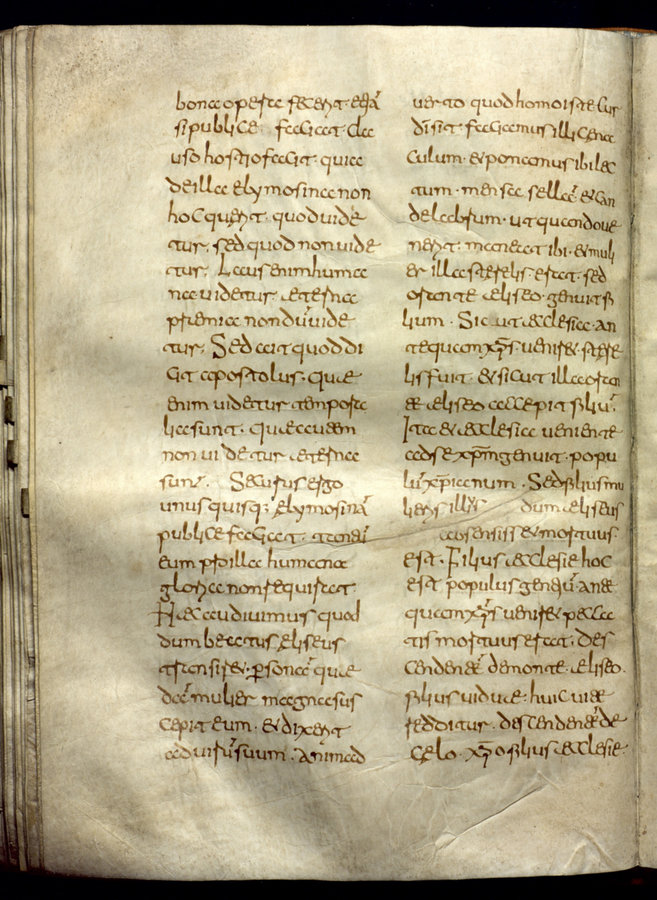 bona opera fecerit · etiā
si publice · faciat cla
uso hostio faciat · quia
de illa elymosina non
hoc querit · quod uide
tur, sed quod non uide
tur, Laus enim huma
na uidetur, aeterna
premia non dū uide
tur, Sed ait quod di
cit apostolus · quae
enim uidetur tempora
lia sunt · quae autem
non uidetur aeterna
sunt · Securus ergo
unusquisq; elymosinā
publice faciat :
eum illa humana
gloria non requirat
Haec audiuimus quod
dum beatus eliseus
transiret · quae
dā mulier magna sus
cepit eum · et dixerit
ad uirū suum · animad
uerto quod homo iste
dī sit faciamus illi cena
culum · et ponamus ibi lec
tum · mensa sellā et can
delabrum · ut quando ue
nerit maneat ibi · et muli
er illa sterelis erat, sed
aeliseo · genuit fi
lium · Sicut aecclesia an
te quam xp̄s ueniret stere
lis fuit · et sicut illa
aeliseo accepit filiū ·
Ita et aecclesia ueniente
ad se xp̄m genuit · popu
lū xp̄ianum · Sed filius mu
lieris illius dum eliseus
absens isset mortuus
est · Filius aecclesie hoc
est populus gentiū ante
quam xp̄s ueniret pecca
tis mortuus erat, Des
cendente de monte · aeliseo ·
filius uiduae · huic uitae
redditur · descendente de
celo · xp̄o filius aecclesie